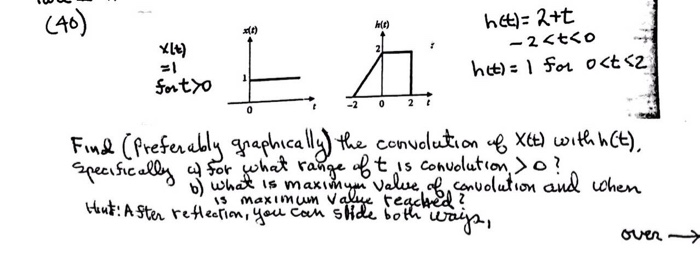 (40)
x(t)
h(t)
h(t) = 2+t
-2<t<0
X(t)
=1
for t>0
1
0
t
2
-2 0 2 t
h(t) = 1 for 0<t<2
Find (preferably graphically) the convolution of X(t) with h(t),
specifically a) for what range of t is convolution > 0?
b) what is maximum value of convolution and when
is maximum value reached?
Hint: After reflection, you can slide both ways,
over →